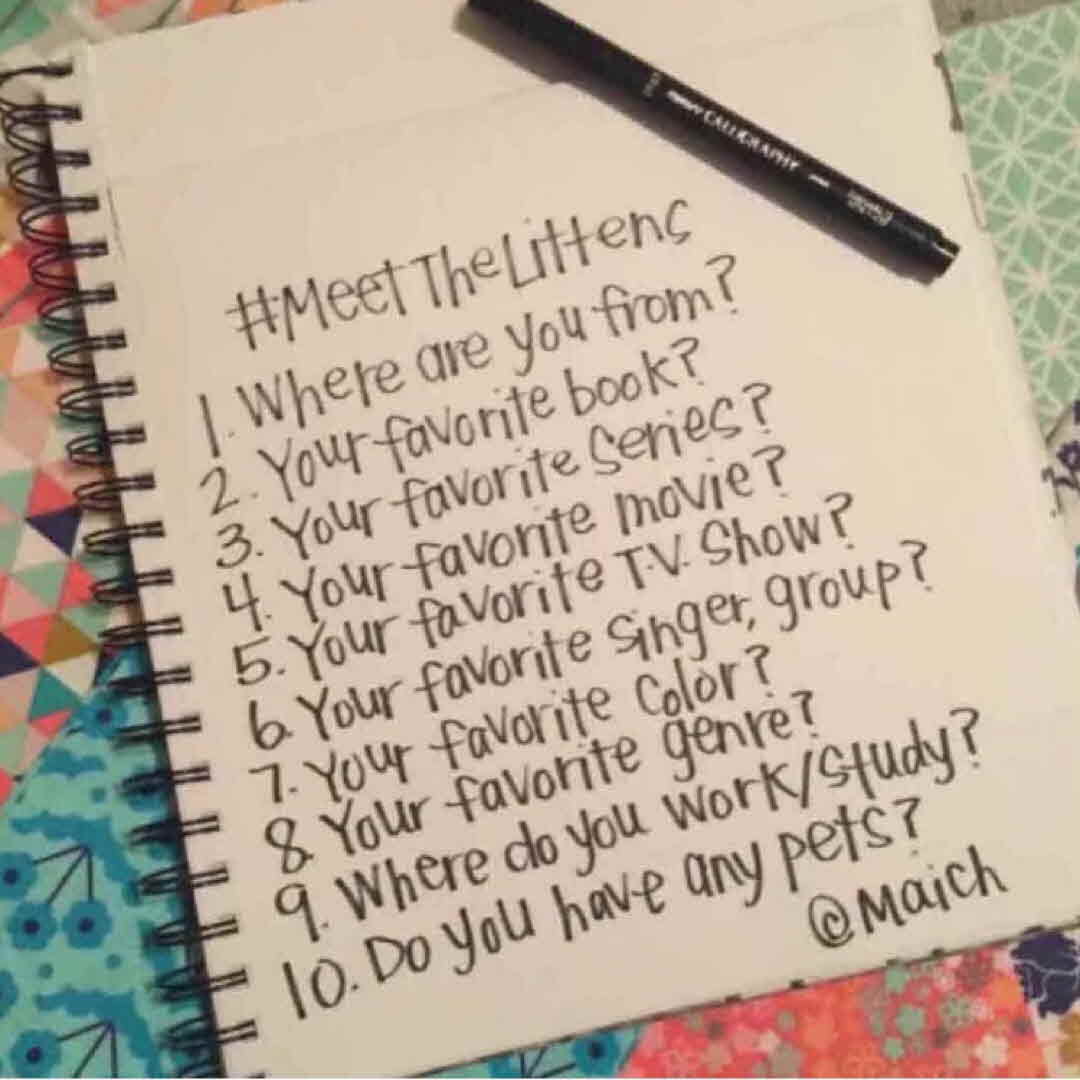 CALLIGRAPHY
#MeetTheLittens
1. Where are you from?
2. Your favorite book?
3. Your favorite series?
4. Your favorite movie?
5. Your favorite T.V. Show?
6. Your favorite singer, group?
7. Your favorite color?
8. Your favorite genre?
9. Where do you work/study?
10. Do you have any pets?
@Maich